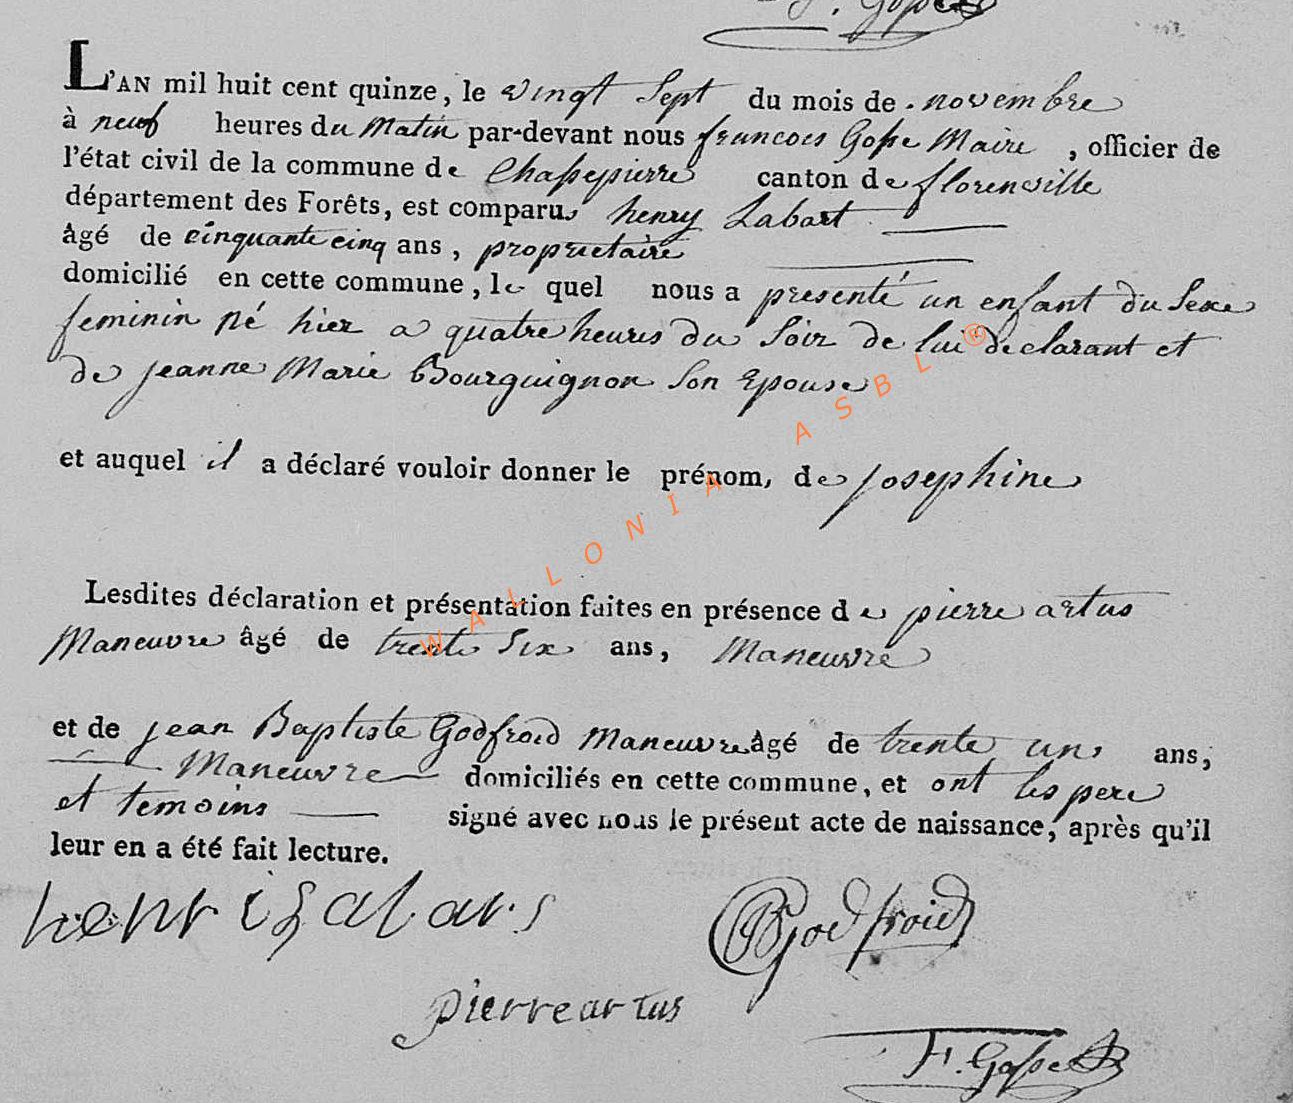 F. Gosse
L'AN mil huit cent quinze, le vingt sept du mois de novembre
à neuf heures du Matin par-devant nous francois Gosse Maire, officier de
l'état civil de la commune de Chassepierre canton de florenville
département des Forêts, est comparu henry Labart
âgé de cinquante cinq ans, proprietaire
domicilié en cette commune, le quel nous a presenté un enfant du Sexe
feminin né hier a quatre heures du Soir de lui declarant et
de jeanne Marie Bourguignon Son Epouse
et auquel il a déclaré vouloir donner le prénom, de josephine
Lesdites déclaration et présentation faites en présence de pierre artus
Maneuvre âgé de trente Six ans, Maneuvre
et de jean Baptiste Godfroid Maneuvre âgé de trente un ans,
Maneuvre domiciliés en cette commune, et ont les pere
et temoins signé avec nous le présent acte de naissance, après qu'il
leur en a été fait lecture.
henri
Godfroid
pierre artus
F. Gosse
WALLONIA ASBL ®